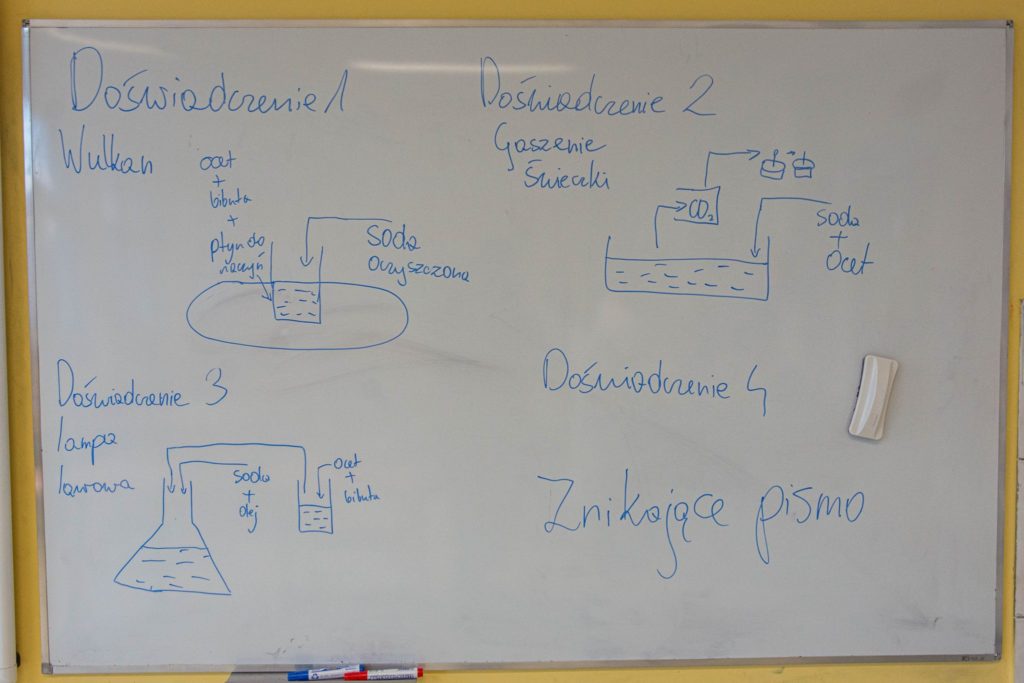 Doświadczenie 1
Wulkan
ocet
+
bibuła
+
płyn do
naczyń
soda
oczyszczona
Doświadczenie 2
Gaszenie
Świeczki
CO₂
soda
+
Ocet
Doświadczenie 3
lampa
lawowa
soda
+
olej
ocet
+
bibuła
Doświadczenie 4
Znikające pismo